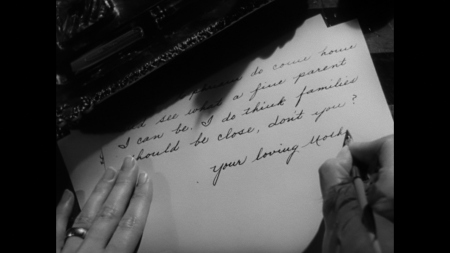 do come home
and see what a fine parent
I can be. I do think families
should be close, don't you?
Your loving Moth